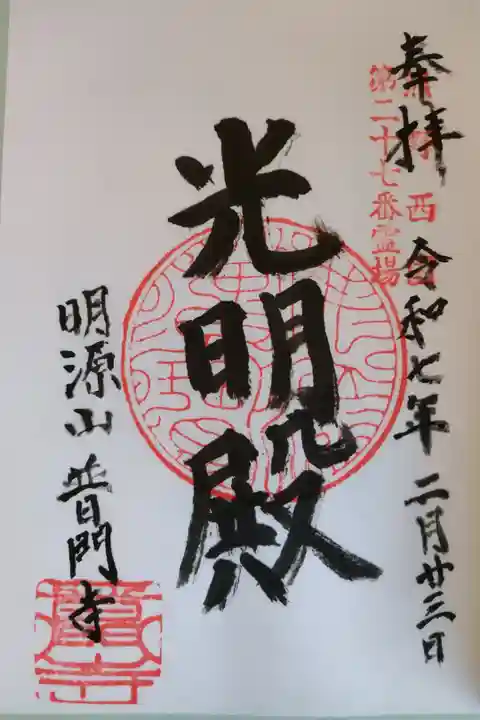 奉拝
令和七年二月廿三日
第二十七番霊場
光明殿
明源山普門寺